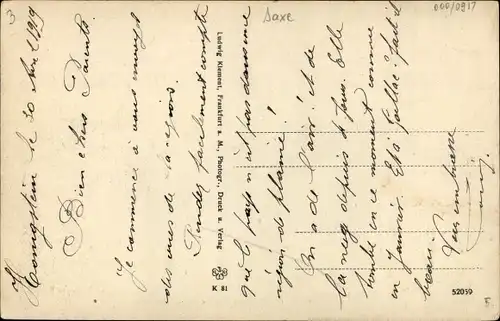 3
Saxe
000/0917
Königstein le 30 Avril 1919
Bien chers Parents
Je commence à vous envoyer
des vues de la région.
Rendez facilement compte
que le pays n'est pas dans une
région de plaine!
On a de l'air! et de
la neige depuis 8 jours. Elle
tombe en ce moment comme
en Janvier. Et à Gaillac fait-il
beau.
Vous embrasse
Ludwig Klement, Frankfurt a. M., Photogr., Druck u. Verlag
K 81
52059